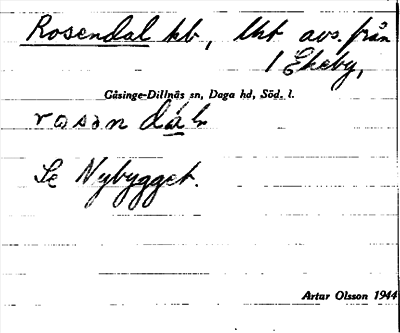 Rosendal hb, lht avs. från
1 Ekeby,
Gåsinge-Dillnäs sn, Daga hd, Söd. l.
rosəndá̱l
Se Nybygget.
Artur Olsson 1944